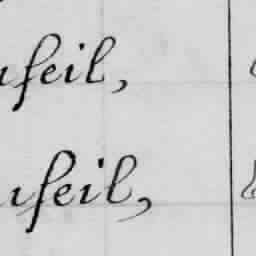 ufeil,
ufeil,